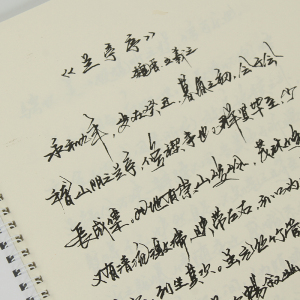 《兰亭序》
魏晋 王羲之
永和九年，岁在癸丑，暮春之初，会于会
稽山阴之兰亭，修禊事也。群贤毕至，少
长咸集。此地有崇山峻岭，茂林修
又有清流激湍，映带左右，引以为
列坐其次。虽无丝竹管